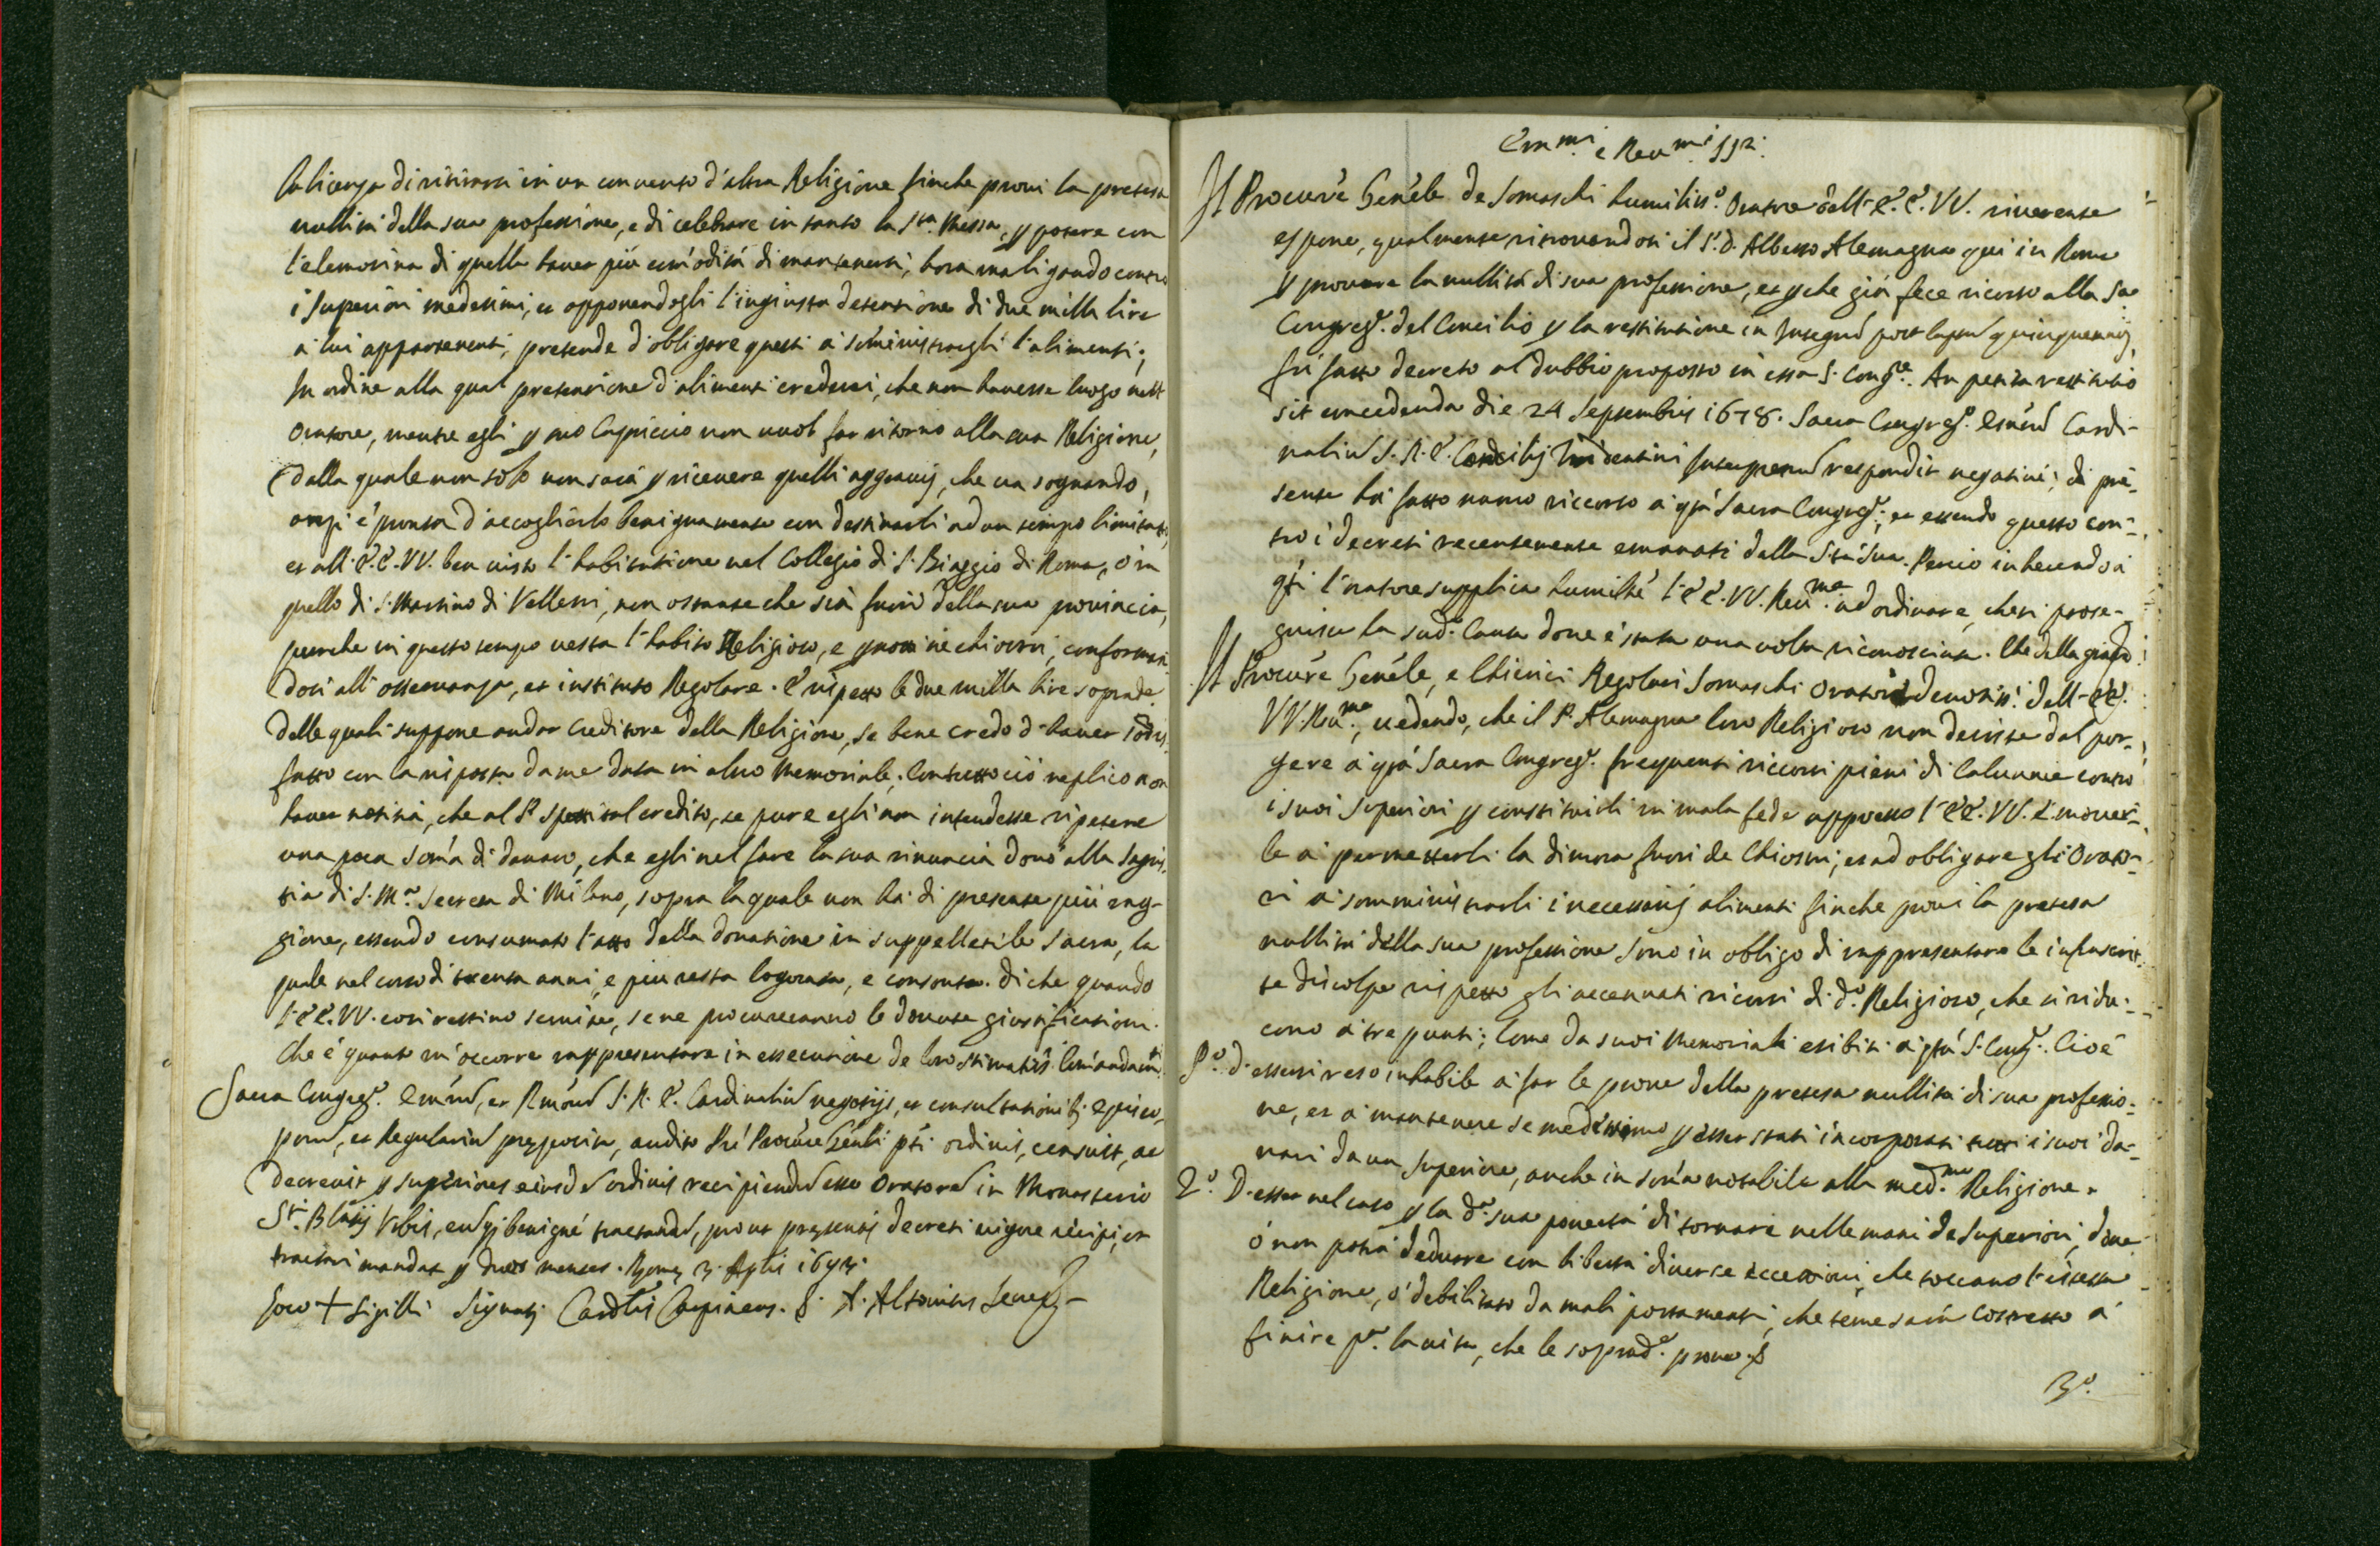 la licenza di ritirarsi in un convento d'altra Religione finche provi la pretesa
nullità della sua professione, e di celebrare in tanto la Sta. Messa, p potere con
l'elemosina di quella haver più com'odità di mantenersi, hora malignando contro
i Superiori medesimi, et opponendogli l'ingiusta detentione di due milla lire
à lui appartenenti, pretende d'obligare questi à som'inistrargli l'alimenti;
In ordine alla qual pretensione d'alimenti crederei, che non havesse luogo nell'
Oratore, mentre egli p suo Capriccio non vuol far ritorno alla sua Religione,
dalla quale non solo non sarà p ricevere quelli aggravij, che va sognando,
anzi è pronta d'accoglierlo benignamente con destinarli ad un tempo limitato,
et all'E.E.VV. ben visto l'habitatione nel Collegio di S. Biaggio di Roma, ò in
quello di S. Martino di Velletri, non ostante che sia fuori della sua provincia,
purche in questo tempo vesta l'habito Religioso, e ne chiostri, conforman
dosi all'osservanza, et instituto Regolare. E rispetto le due milla lire soprade.
delle quali suppone andar Creditore della Religione, se bene credo d'haver sodis
fatto con la risposta da me data in altro Memoriale. Contuttociò replico non
haver notitia, che al P. spetti tal credito, se pure egli non intendesse ripetere
una poca som'a di danaro, che egli nel fare la sua rinuncia donò alla Sagris
tia di S. Ma. Secreta di Milano, sopra la quale non hà di presente più rag-
gione, essendo consumato l'atto della donatione in suppellettile Sacra, la
quale nel corso di trenta anni, e più resta logorata, e consonta. Di che quando
l'EE.VV. cosi restino servite, se ne procureranno le dovute giustificationi.
Che è quanto m'occorre rappresentare in essecutione de loro stimatis. Com'andamti.
Sacra Congreg. Em'ord, et Rm'ord S.R.E. Cardinaliu negotijs, et consultationib; Episco
pord, et Regulariu preposita, audito Pre Procure Gen'li pti ordinis, censuit, ac
decrevit p superiores eiusd ordinis recipiendu esse Oratore in Monasterio
Sti. Blasij Urbis, eumq; benigné tractand, prout presentis decreti vigore recipi, et
tractari mandat p duos menses. Rome 3. Aplis
Loco + Sigilli Signatj Cardlis Carpineus. A. Altovitus Secret
Emmi. e Reumi. SSri.
Il Procure Gen'ele de Somaschi humiliss. Oratore dell'E.E.VV. riverente
espone, qualmente ritrovandosi il P. D. Alberto Alemagna qui in Roma
p provare la nullità di sua professione, et p che già fece ricorso alla Sa
Congreg. del Concilio p la restitutione in Integrd post lapsu quinquennij,
fù fatto decreto al dubbio proposto in essa S. Congne. An petita restitutio
sit concedenda die 24 Septembris 1678. Sacra Congreg. Em'ord Cardi-
naliu S.R.E. Concilij Tridentini Interpretu respondit negativé; di pre-
sente hà fatto nuovo ricorso à qta Sacra Congreg.; et essendo questo con-
tro i decreti recentemente emanati dalla Stà Sua. Perciò inherendo à
qti l'oratore supplica humilte l'EE.VV. Reume. ad ordinare, che si prose-
guisca la sud. Causa dove è stata una volta riconosciuta. Che della gratia
Il Procure Gen'ele, e Chierici Regolari Somaschi Oratori devotiss. dell'EE.
VV. Reume, vedendo, che il P. Alemagna loro Religioso non desiste dal por-
gere à qta Sacra Congreg. frequenti riccorsi pieni di Calunnie contro
i suoi Superiori p constituirli in mala fede appresso l'EE.VV. e mover-
le à permetterli la dimora fuori de Chiostri; et ad obligare gli Orato-
ri à somministrarli i necessarij alimenti finche provi la pretesa
nullità della sua professione sono in obligo di rappresentare le infrascrit-
te discolpe rispetto gli accennati ricorsi di do. Religioso, che si ridu-
cono à tre punti; Come da suoi Memoriali esibiti à qta S. Cong. Cioè
Po. d'essersi reso inhabile à far le prove della pretesa nullità di sua professio-
ne, et à mantenere se medesimo p esser stati incorporati tutti i suoi da-
nari da un Superiore, anche in som'a notabile alla medma. Religione.
2o. D'esser nel caso p la da. sua povertà di tornare nelle mani de Superiori, dove
ò non potrà dedurre con libertà diverse eccezioni, che toccano l'istessa
Religione, ò debilitato da mali portamenti, che teme sarà costretto à
finire pa. la vita, che le soprade. prove
3o.